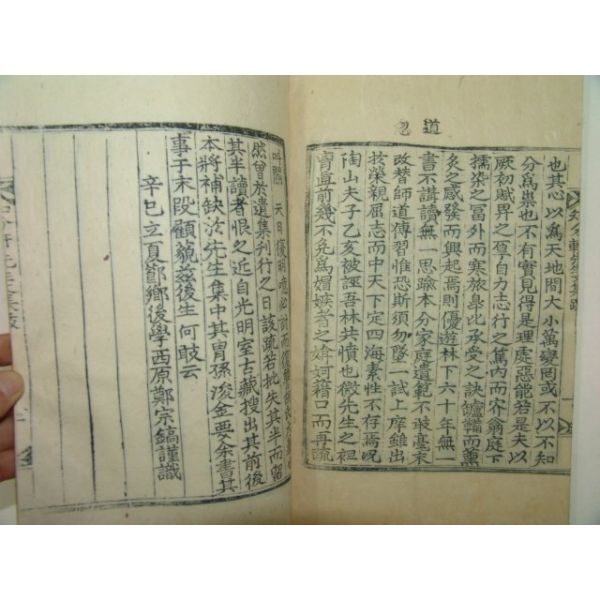 道
也其心以爲天地間大小萬變罔或不以不知
分爲祟也不有實見得是理處惡能若是夫以
厥初賦畀之 自力志行之篤內而 翁庭下
擩染之冨外而寒旅臯比承受之訣 而薰
炙之感發而興起焉則優遊林下六十年無一
書不講讀無 思踰本分家庭遺範不敢毫末
改替師道傳習惟恐斯須勿墜一試上庠雖出
於榮親屈志而中天下定四海素性不存焉况
陶山夫子乙亥被誣吾林共憤也微先生之袒
直前幾不免爲媢嫉者之媕婀藉口而再疏
叫閽 天日復明
然曾於遺集刊行之日該疏若批失其半而留
其半讀者恨之近自光明室古藏搜出其前後
本將補缺於先生集中其胄孫浚金要余書其
事于末段顧藐茲後生何敢云
辛巳立夏鄭鄉後學西原鄭宗鎬謹識